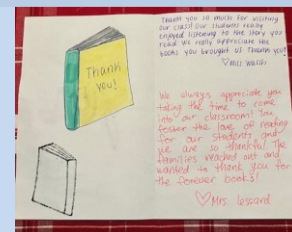 Thank
you!
Thank you so much for visiting
our class! Our students really
enjoyed listening to the story you
read. We really appreciate the
books you brought us. Thank you!
♡Miss Walsh
We always appreciate you
taking the time to come
into our classroom! You
foster the love of reading
for our students and
we are so thankful. The
families reached out and
wanted to thank you for
the forever books!
♡Mrs. Lessard